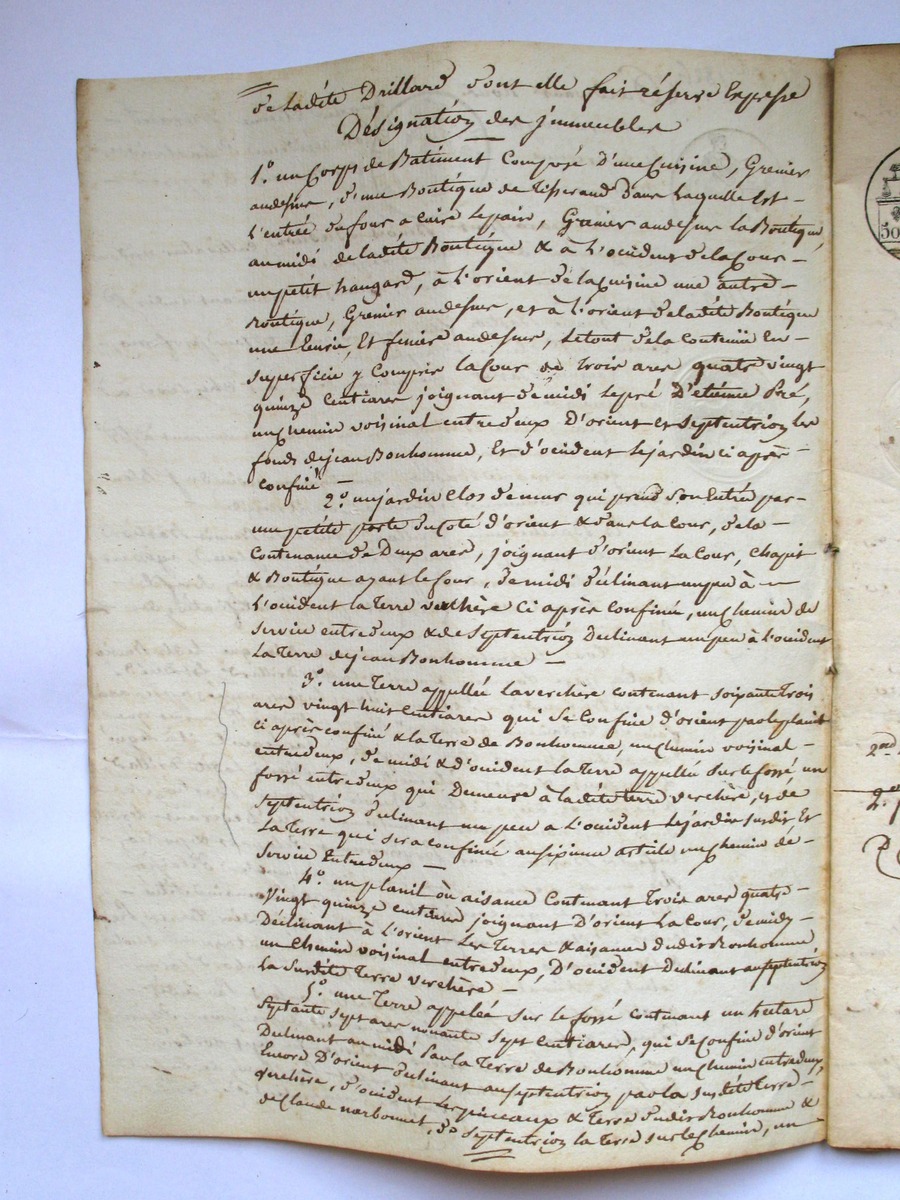 de ladite Drillard dont elle fait réserve Expresse
Désignation des jmmeubles
1.º un Corps de Batiment Composé D'une Cuisine, Grenier
audessus, d'une Boutique de Tisserand Dans laquelle Est -
L'entrée du four a cuire le pain, Grenier audessus la Boutique,
au midi de ladite Boutique & à L'occident de la Cour -
un petit hangard, à l'orient de la Cuisine une autre -
Boutique, Grenier audessus, et à l'orient de ladite Boutique
une Eurie, Et feniere audessus, Letout de la Contenüe En -
superficie y Compris la Cour de Trois ares quatre vingt
quinze Centiares joignant de midi le pré D'etienne Pré,
un Chemin voisinal entredeux D'orient et Septentrion les
fonds de jean Bonhomme, Et d'occident le jardin ci après -
Confiné -
2.º un jardin Clos de murs qui prend son Entrée par -
une petite porte du Coté d'orient & dans la Cour, de la -
Contenance de Deux ares, joignant d'orient La Cour, Chapit
& Boutique ayant le four, de midi déclinant un peu à -
L'occident la Terre verchère Ci après Confinée, un Chemin de
Service entredeux & de Septentrion Declinant un peu à l'occident
La Terre de jean Bonhomme -
3.º une Terre appellée Laverchère contenant soixante Trois
ares vingt huit Centiares qui se Confine d'orient par le planit
ci après confiné & la Terre de Bonhomme, un Chemin voisinal -
entredeux, de midi & d'occident la Terre appellée sur le fossé, un
fossé entredeux qui Demeure à ladite terre verchère, et de
Septentrion declinant un peu a L'occident Le jardin susdit Et
La Terre qui sera confinée au sixieme article un Chemin de -
Service Entredeux -
4.º un planit ou aisance Contenant Trois ares quatre -
Vingt quinze centiares joignant D'orient la Cour, de midy -
Déclinant à L'orient Les Terres & aisance dudit Bonhomme
un Chemin voisinal entredeux, D'occident Declinant au septentrion
La Susdite Terre verchère -
5.º une Terre appelée sur le fossé contenant un hectare
Septante sept ares nonante sept Centiares, qui se Confine d'orient
Declinant au midi par la Terre de Bonhomme un Chemin entredeux,
Encore D'orient declinant au septentrion par la susdite Terre -
verchère, d'occident Les & Terre dudit Bonhomme &
de Claude narbonnet, de Septentrion la Terre sur le Chemin, un
50
2.nd